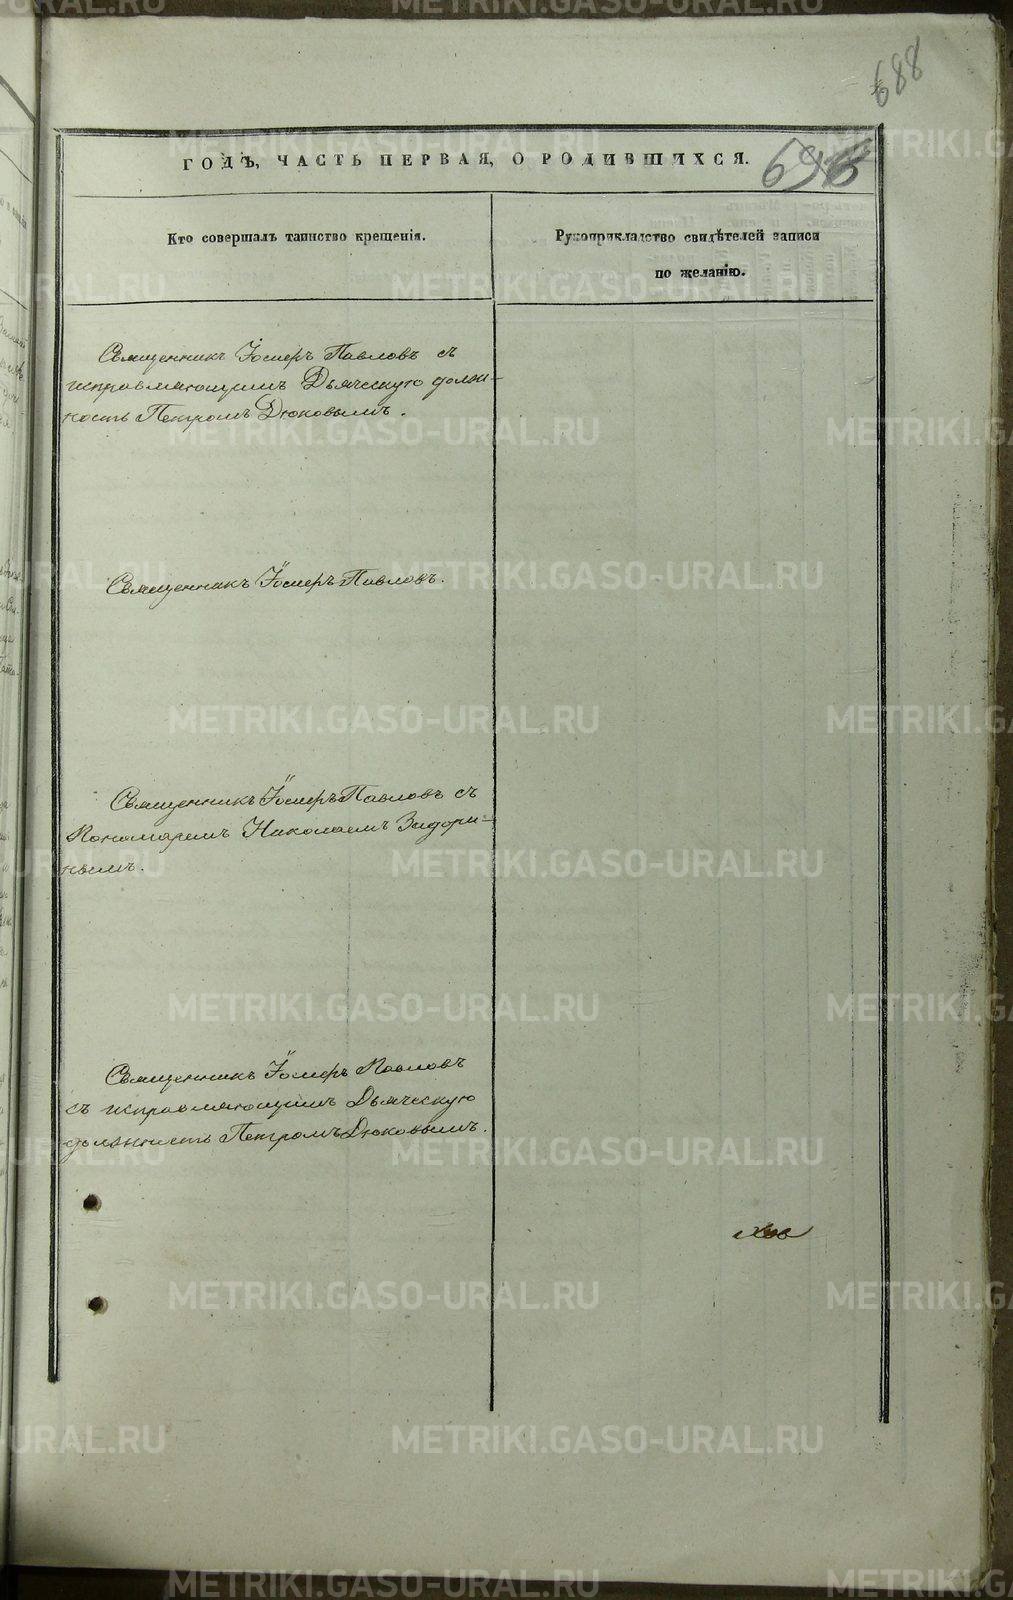 688
ГОДЪ, ЧАСТЬ ПЕРВАЯ, О РОДИВШИХСЯ.
Кто совершалъ таинство крещенія.
Рукоприкладство свидѣтелей записи
по желанію.
Священникъ Іосифъ Павловъ съ
исправляющимъ Дьяческую долж-
ность Петромъ Дюковымъ.
Священникъ Іосифъ Павловъ.
Священникъ Іосифъ Павловъ съ
Пономаремъ Николаемъ
нымъ.
Священникъ Іосифъ Павловъ
съ исправляющимъ Дьяческую
должность Петромъ Дюковымъ.
METRIKI.GASO-URAL.RU